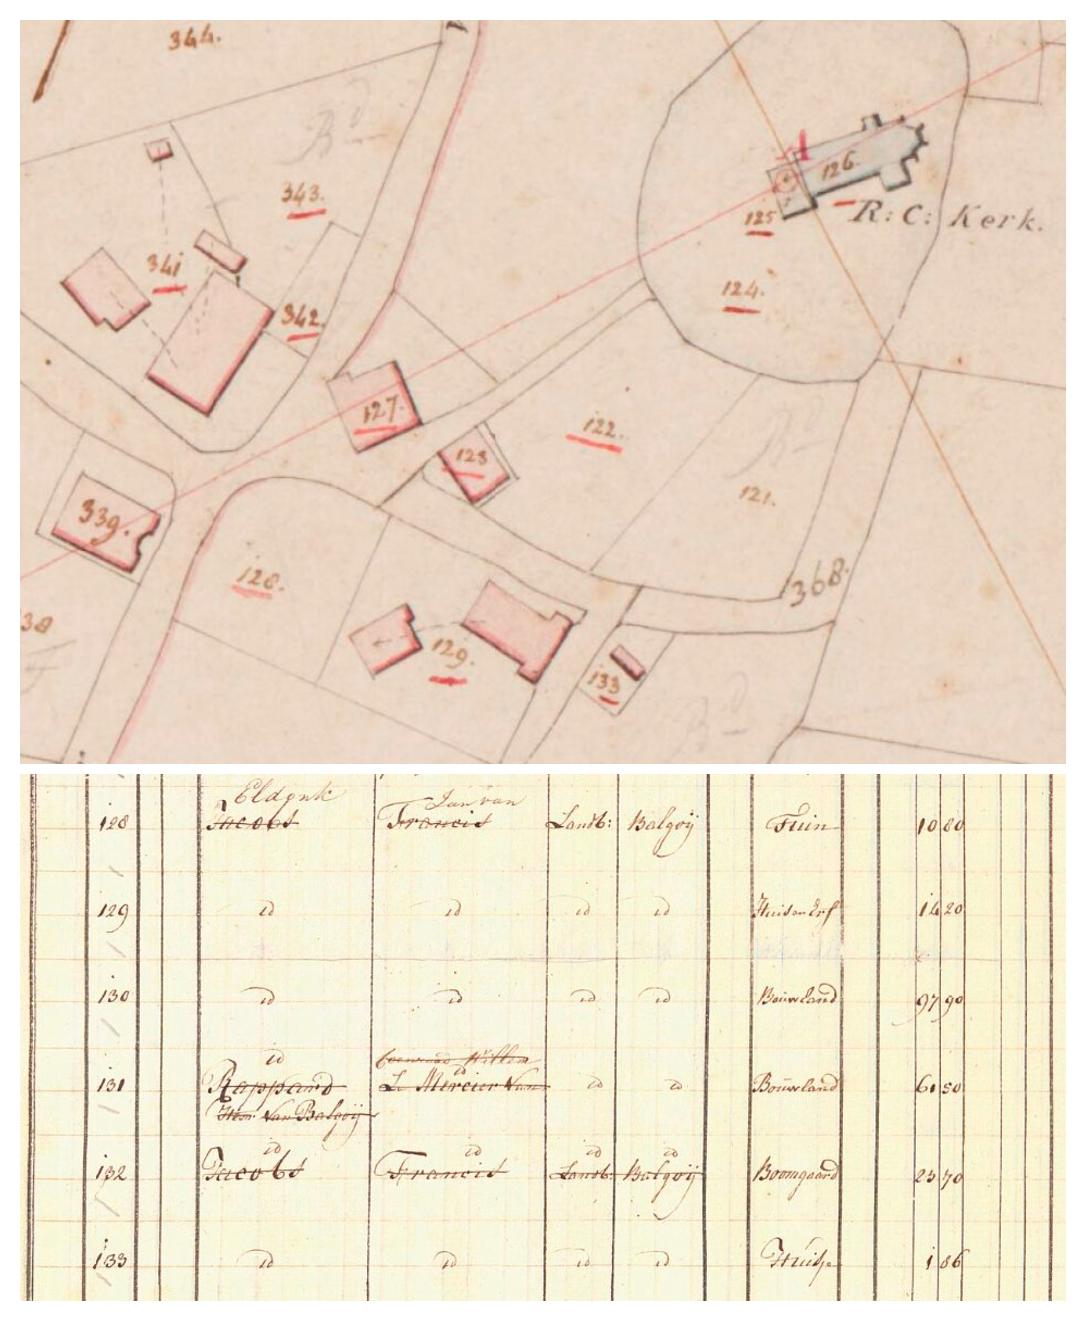 344.
343.
341
342.
126.
R: C: Kerk.
125
124.
127.
122.
123
121.
339.
128.
129.
368.
133
38
Eldonk Jan van
128 Jacobs Francis Landb: Balgoÿ Tuin 10 80
129 id id id id Huis en Erf 14 20
130 id id id id Bouwland 97 90
id Coenraad Willem
131 Rappard id Le Mercier Van id id Bouwland 61 50
Heer Van Balgoÿ
id id id id
132 Jacobs Francis Landb: Balgoÿ Boomgaard 23 70
133 id id id id Huisje 1 86